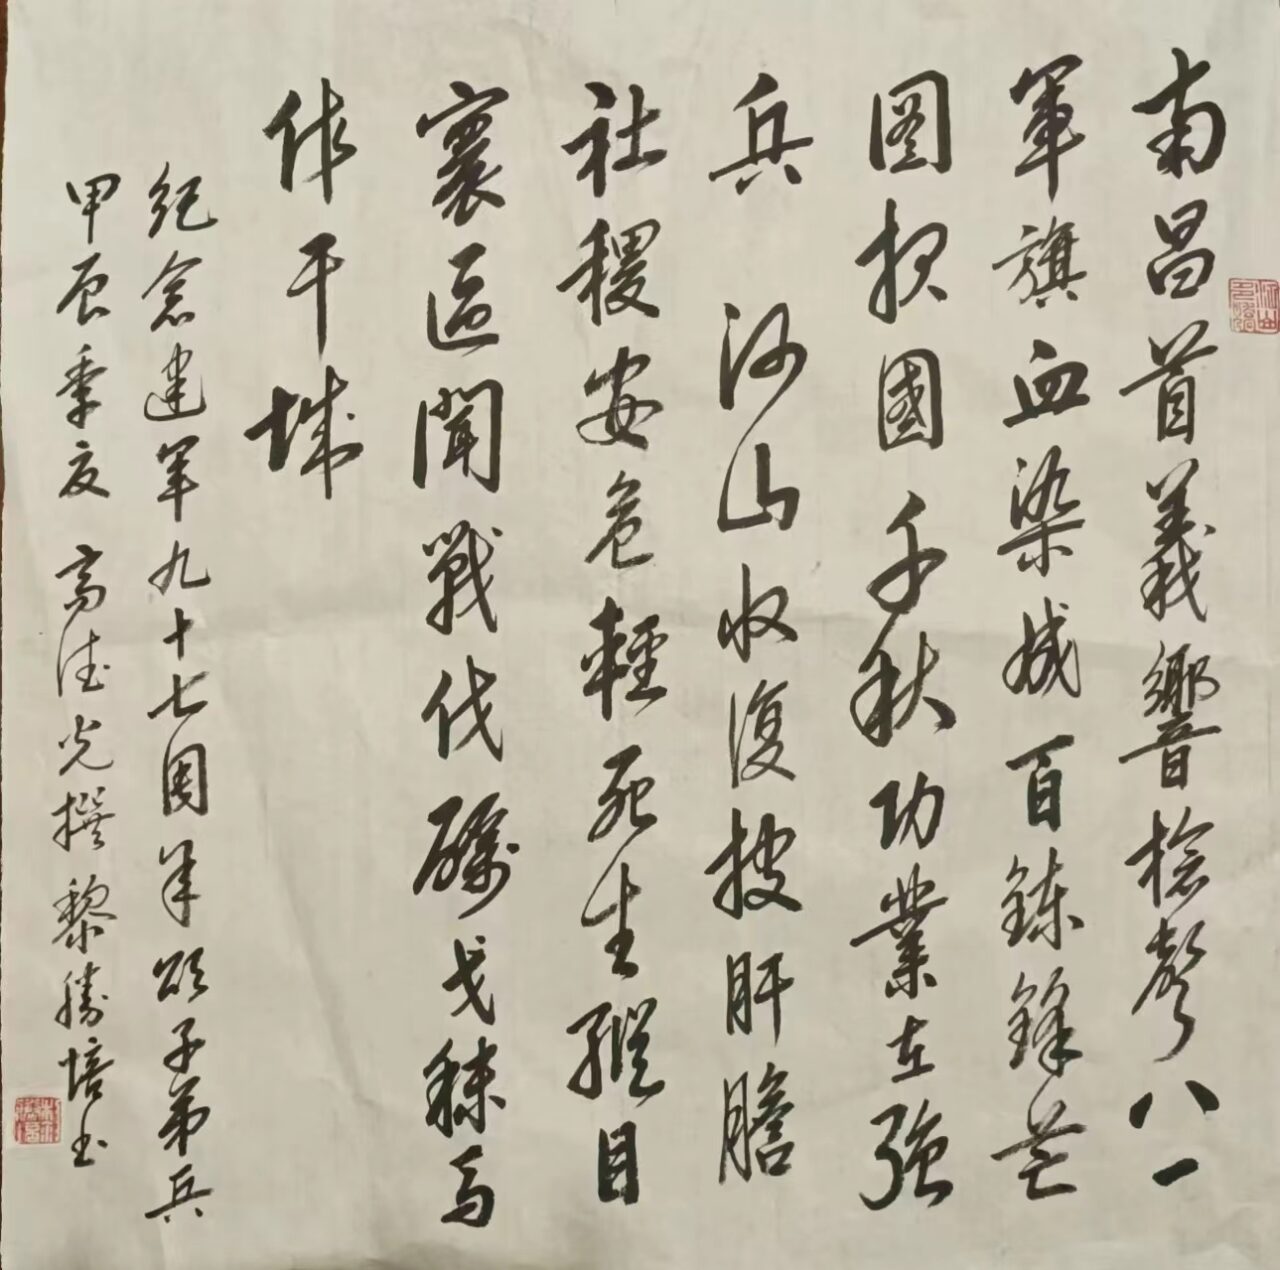 南昌首義響槍聲八一
軍旗血染成百鍊鋒芒
圖報國千秋功業在強
兵 河山收復披肝膽
社稷安危輕死生縱目
寰區聞戰伐礪戈秣馬
作干城
紀念建军九十七周年頌子弟兵
甲辰季夏 高德光撰 黎勝培书